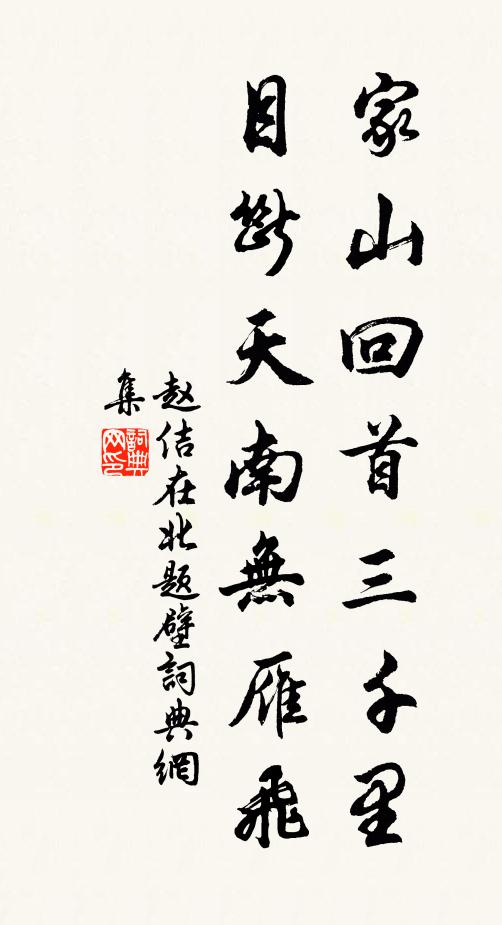 家山回首三千里
目斷天南無雁飛
赵佶在北题壁詞典網
集
詞典
网印